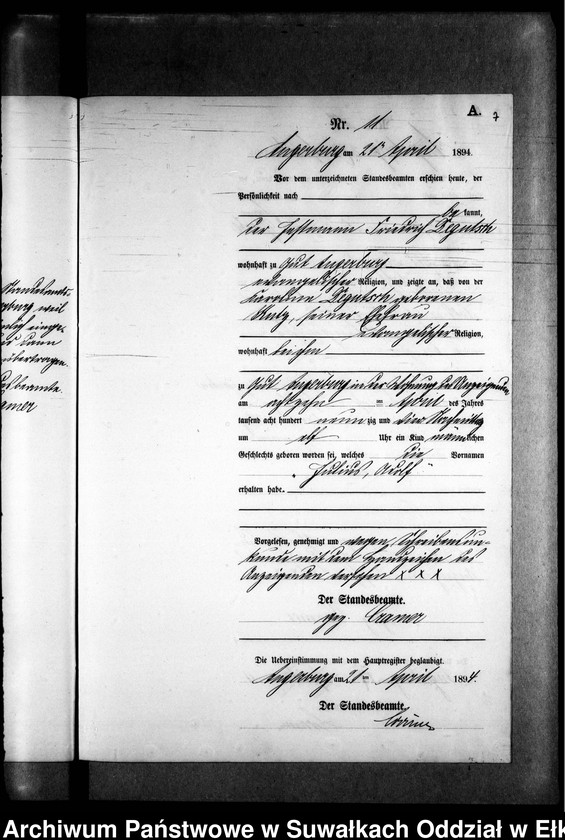 A. 7
Nr. 11
Angerburg am 21ten April 1894.
Vor dem unterzeichneten Standesbeamten erschien heute, der
Persönlichkeit nach
be kannt,
der Friedrich Degutsch
wohnhaft zu Gut Angerburg
evangelischer Religion, und zeigte an, daß von der
Karoline Degutsch geborenen
seiner Ehefrau
evangelischer Religion,
wohnhaft bei ihm
zu Gut Angerburg in der Wohnung des Anzeigenden
am achtzehn ten April des Jahres
tausend acht hundert neun zig und vier Vormittag
um elf Uhr ein Kind männ lichen
Geschlechts geboren worden sei, welches die Vornamen
"Julius, Adolf"
erhalten habe.
Vorgelesen, genehmigt und wegen Schreibensun-
kunde mit dem Handzeichen des
Anzeigenden versehen x x x
Der Standesbeamte.
gez. Cramer
Die Uebereinstimmung mit dem Hauptregister beglaubigt.
Angerburg am 21ten April 1894.
Der Standesbeamte.
Cramer
Archiwum Państwowe w Suwałkach Oddział w Ełk